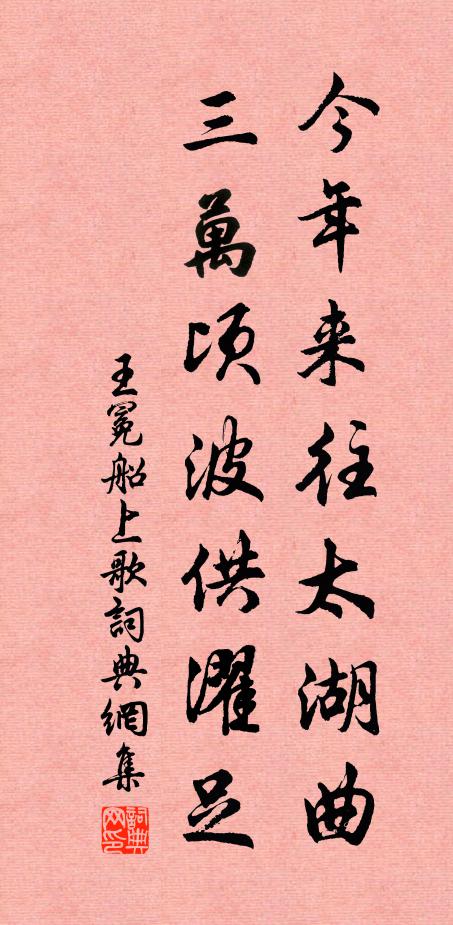 今年来往太湖曲
三萬頃波供濯足
王冕船上歌詞典網集
詞典网印